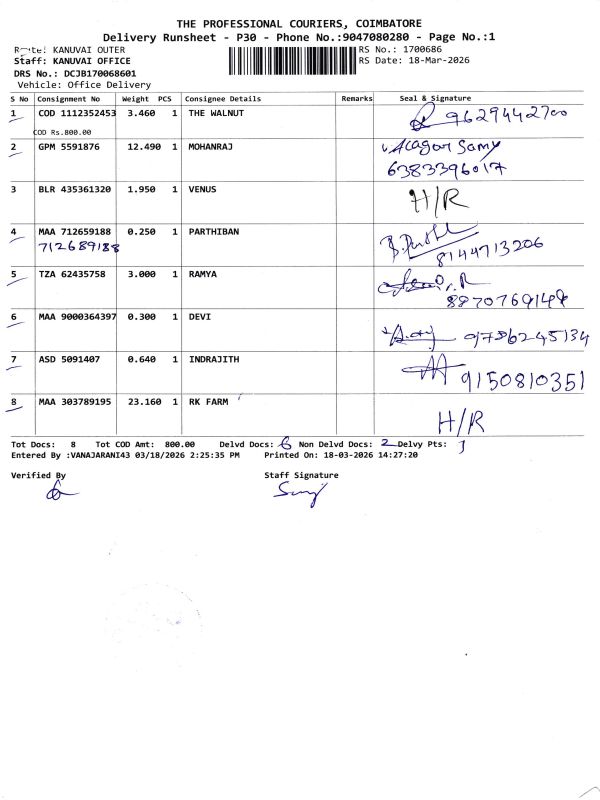 THE PROFESSIONAL COURIERS, COIMBATORE
Delivery Runsheet - P30 - Phone No.:9047080280 - Page No.:1
Route: KANUVAI OUTER RS No.: 1700686
Staff: KANUVAI OFFICE RS Date: 18-Mar-2026
DRS No.: DCJB170068601
Vehicle: Office Delivery
S No Consignment No Weight PCS Consignee Details Remarks Seal & Signature
1 COD 1112352453 3.460 1 THE WALNUT 9629442700
COD Rs.800.00
2 GPM 5591876 12.490 1 MOHANRAJ Alagar Samy
6383396017
3 BLR 435361320 1.950 1 VENUS H/R
4 MAA 712659188 0.250 1 PARTHIBAN
712689188 8144713206
5 TZA 62435758 3.000 1 RAMYA
6 MAA 9000364397 0.300 1 DEVI 9786245134
7 ASD 5091407 0.640 1 INDRAJITH
9150810351
8 MAA 303789195 23.160 1 RK FARM
H/R
Tot Docs: 8 Tot COD Amt: 800.00 Delvd Docs: 6 Non Delvd Docs: 2 Delvy Pts:
Entered By :VANAJARANI43 03/18/2026 2:25:35 PM Printed On: 18-03-2026 14:27:20
Verified By Staff Signature